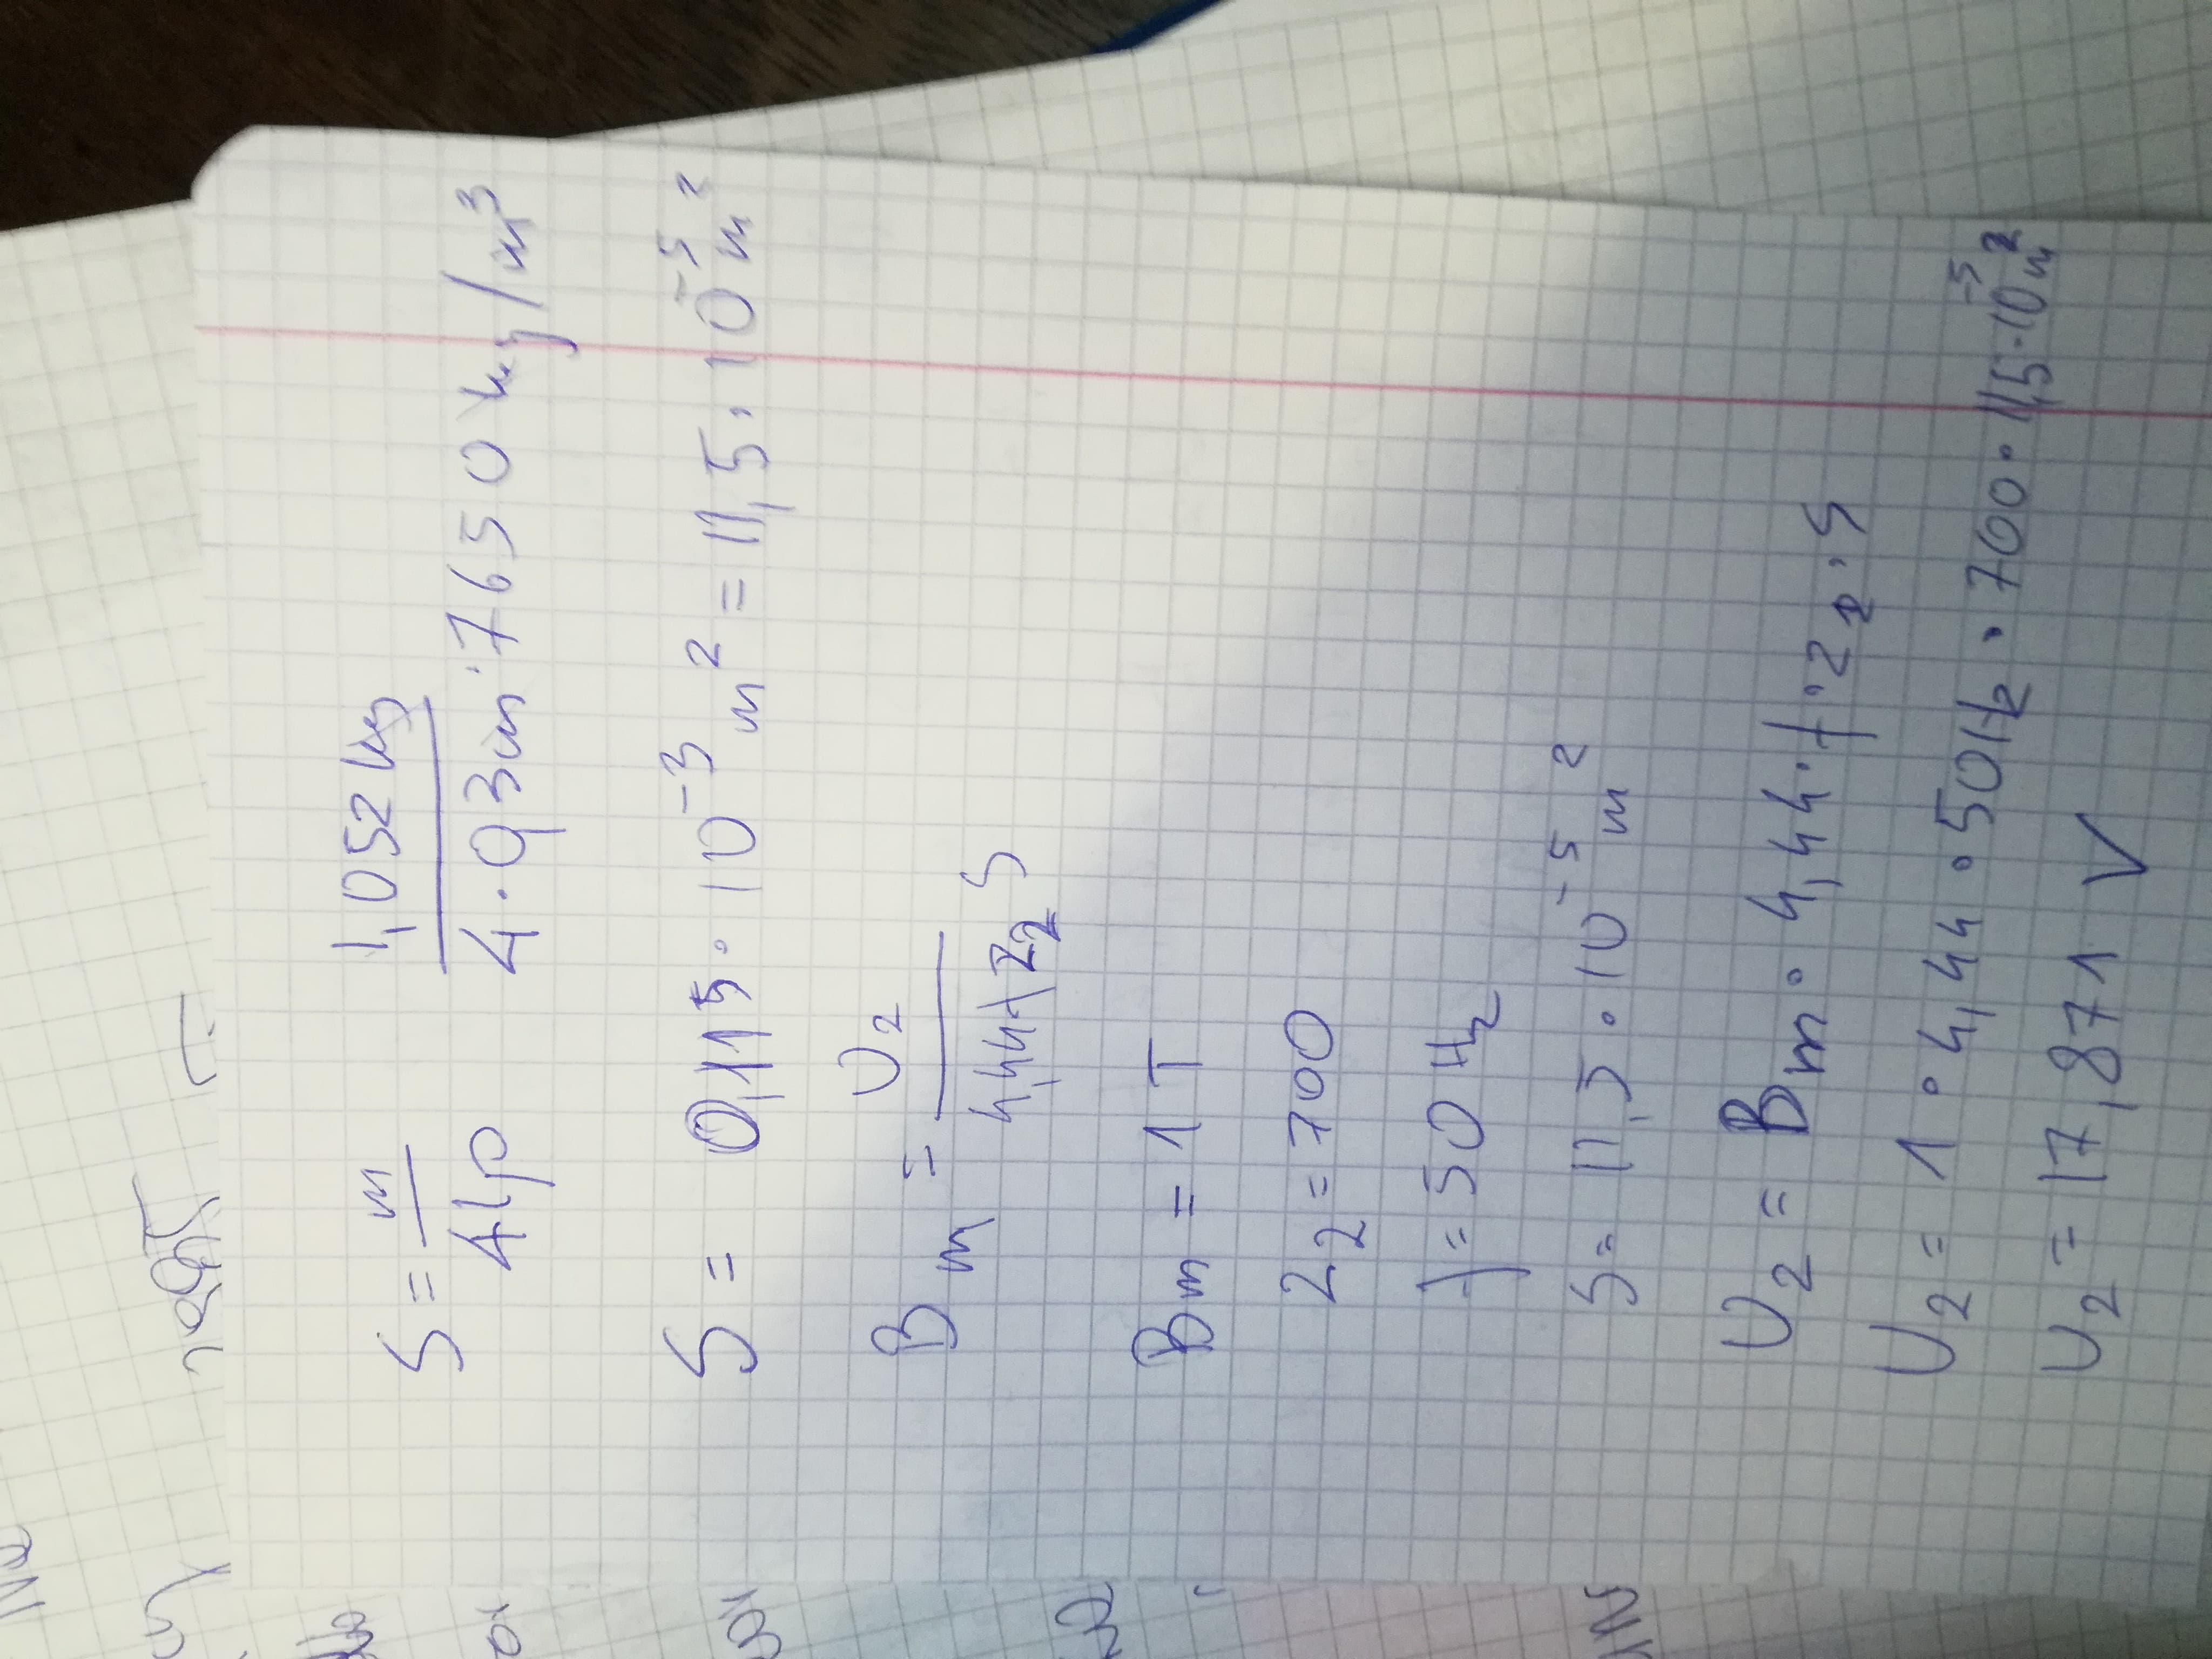 S = m / 4lρ    1,052 kg / 4 · 0,3m · 7650 kg/m³
S = 0,115 · 10⁻³ m² = 11,5 · 10⁻⁵ m²
Bm = U₂ / 4,44 f z₂ S
Bm = 1 T
z₂ = 700
f = 50 Hz
S = 11,5 · 10⁻⁵ m²
U₂ = Bm · 4,44 · f · z₂ · S
U₂ = 1 · 4,44 · 50Hz · 700 · 11,5 · 10⁻⁵ m²
U₂ = 17,871 V